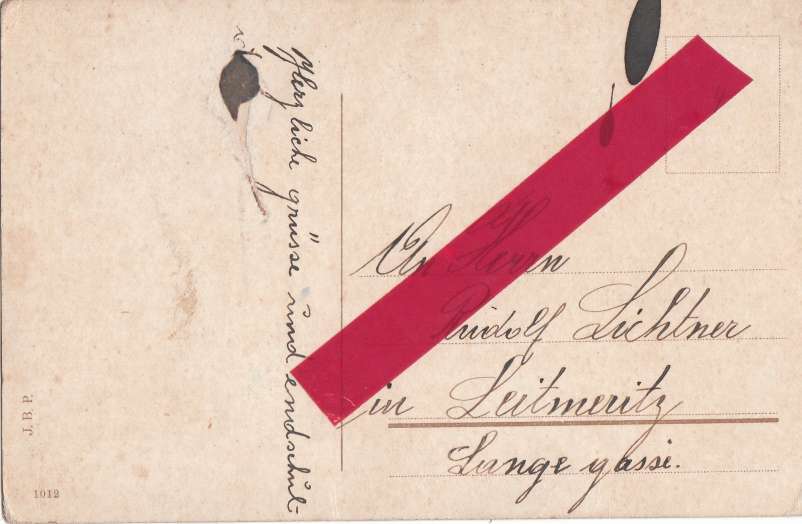 Herzliche grüsse und endschul-
An Herrn
Rudolf Lichtner
in Leitmeritz
Lange gasse.
J. B. P.
1012